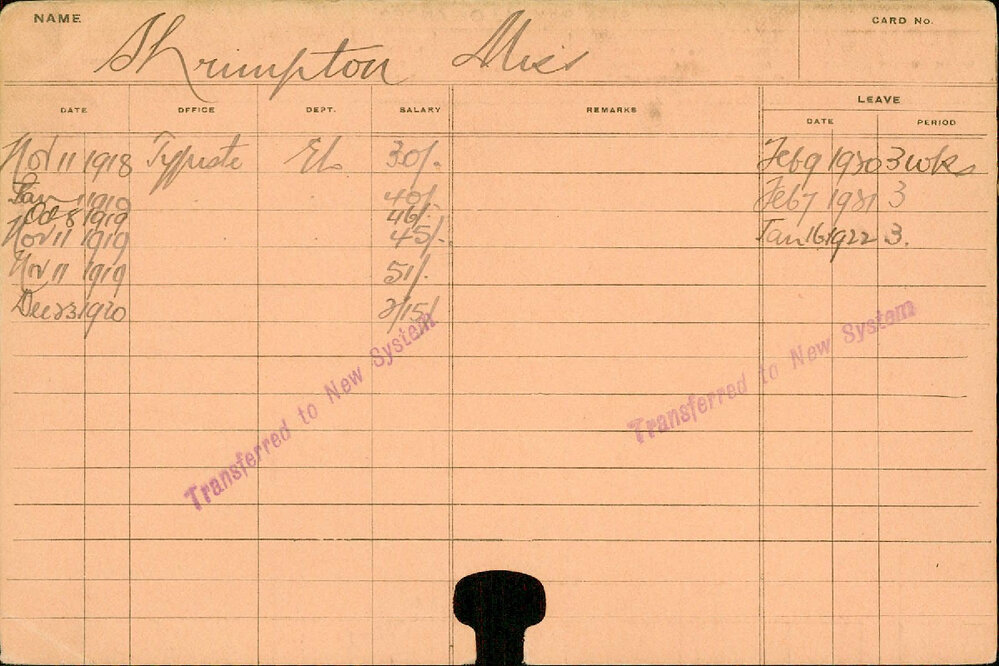 NAME CARD No.
Shrimpton Miss
DATE OFFICE DEPT. SALARY REMARKS LEAVE
DATE PERIOD
Nov 11 1918 Typiste 30/- Feb 9 1920 3 wks
Jan 1 1919 40/- Feb 7 1921 3
Oct 8 1919 46/-
Nov 11 1919 45/- Jan 16 1922 3.
Nov 11 1919 51/-
Dec 23 1920 2/15/-
Transferred to New System
Transferred to New System